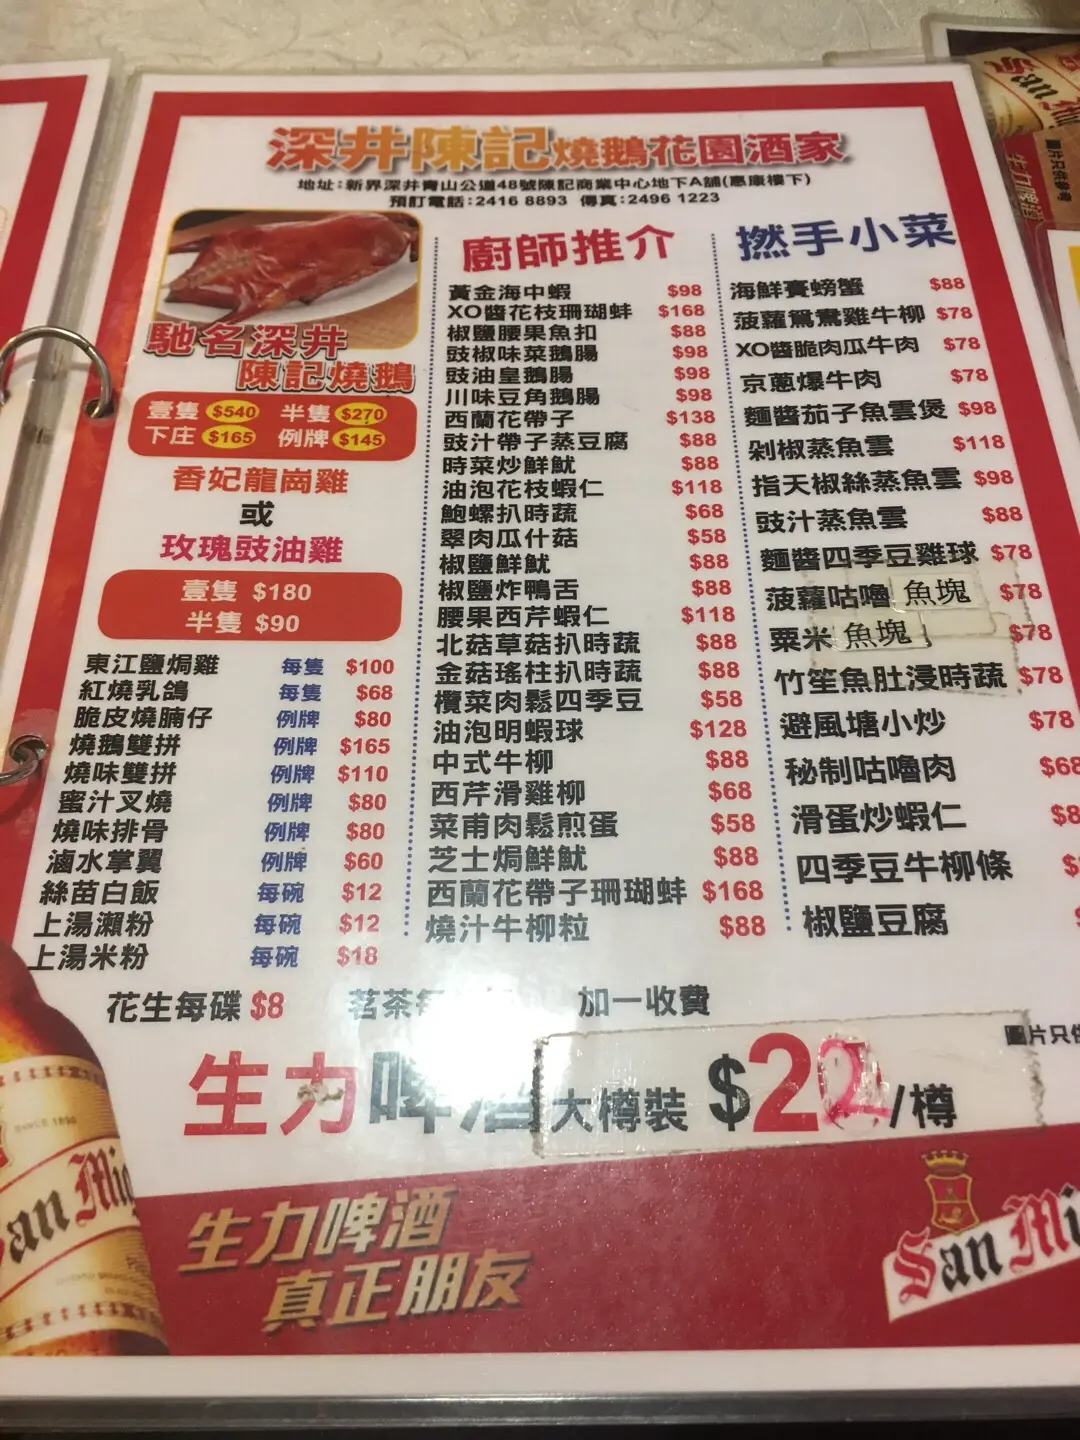 深井陳記燒鵝花園酒家
地址:新界深井青山公道48號陳記商業中心地下A舖(惠康樓下)
預訂電話:2416 8893 傳真:2496 1223
馳名深井
陳記燒鵝
壹隻 $540 半隻 $270
下庄 $165 例牌 $145
香妃龍崗雞
或
玫瑰豉油雞
壹隻 $180
半隻 $90
東江鹽焗雞 每隻 $100
紅燒乳鴿 每隻 $68
脆皮燒腩仔 例牌 $80
燒鵝雙拼 例牌 $165
燒味雙拼 例牌 $110
蜜汁叉燒 例牌 $80
燒味排骨 例牌 $80
滷水掌翼 例牌 $60
絲苗白飯 每碗 $12
上湯瀨粉 每碗 $12
上湯米粉 每碗 $18
廚師推介
黃金海中蝦 $98
XO醬花枝珊瑚蚌 $168
椒鹽腰果魚扣 $88
豉椒味菜鵝腸 $98
豉油皇鵝腸 $98
川味豆角鵝腸 $98
西蘭花帶子 $138
豉汁帶子蒸豆腐 $88
時菜炒鮮魷 $88
油泡花枝蝦仁 $118
鮑螺扒時蔬 $68
翠肉瓜什菇 $58
椒鹽鮮魷 $88
椒鹽炸鴨舌 $88
腰果西芹蝦仁 $118
北菇草菇扒時蔬 $88
金菇瑤柱扒時蔬 $88
欖菜肉鬆四季豆 $58
油泡明蝦球 $128
中式牛柳 $88
西芹滑雞柳 $68
菜甫肉鬆煎蛋 $58
芝士焗鮮魷 $88
西蘭花帶子珊瑚蚌 $168
燒汁牛柳粒 $88
撚手小菜
海鮮賽螃蟹 $88
菠蘿鴛鴦雞牛柳 $78
XO醬脆肉瓜牛肉 $78
京蔥爆牛肉 $78
麵醬茄子魚雲煲 $98
剁椒蒸魚雲 $118
指天椒絲蒸魚雲 $98
豉汁蒸魚雲 $88
麵醬四季豆雞球 $78
菠蘿咕嚕 魚塊 $78
粟米 魚塊 $78
竹笙魚肚浸時蔬 $78
避風塘小炒 $78
秘制咕嚕肉 $68
滑蛋炒蝦仁
四季豆牛柳條
椒鹽豆腐
花生每碟 $8 茗茶 加一收費
圖片只
生力啤酒 大樽裝 $22/樽
生力啤酒
真正朋友
San Mi
San Mig
SINCE 1890
圖片只供參考
生力啤酒
San